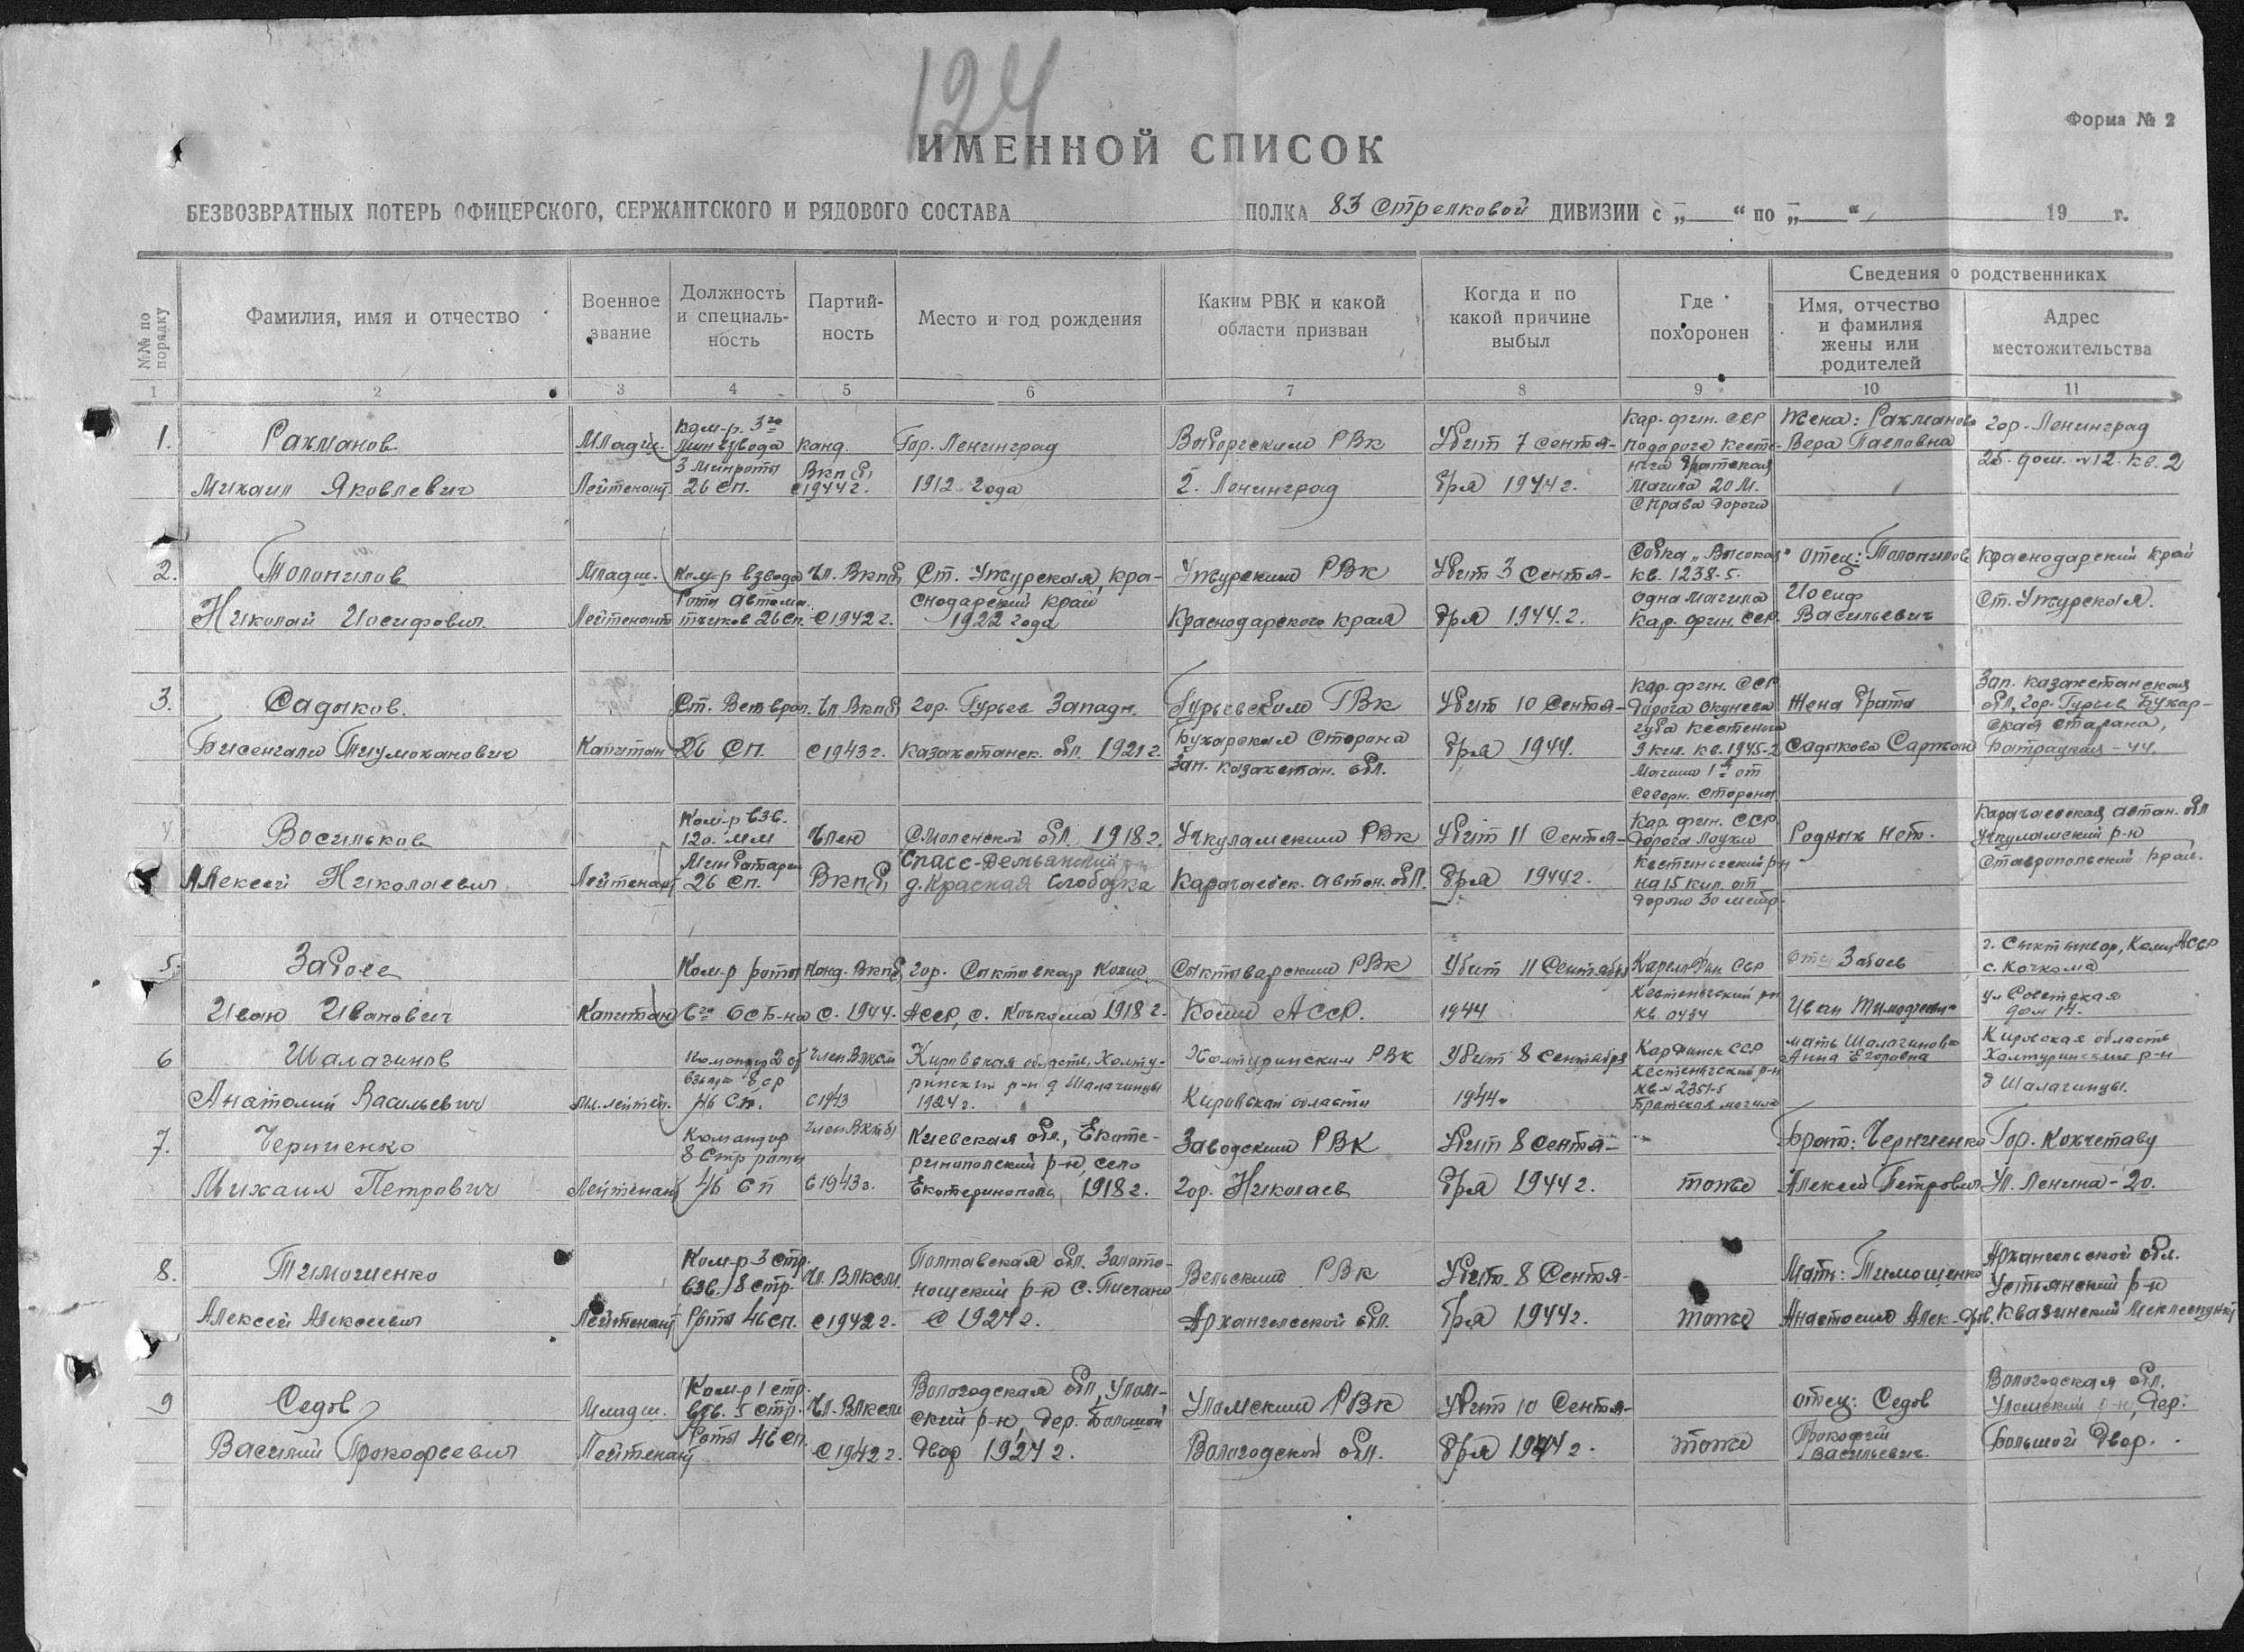 124
Форма № 2
ИМЕННОЙ СПИСОК
БЕЗВОЗВРАТНЫХ ПОТЕРЬ ОФИЦЕРСКОГО, СЕРЖАНТСКОГО И РЯДОВОГО СОСТАВА ПОЛКА 83 Стрелковой ДИВИЗИИ с „ “ по „ “ 19 г.
№№ по порядку
Фамилия, имя и отчество
Военное
звание
Должность
и специаль-
ность
Партий-
ность
Место и год рождения
Каким РВК и какой
области призван
Когда и по
какой причине
выбыл
Где
похоронен
Сведения о родственниках
Имя, отчество
и фамилия
жены или
родителей
Адрес
местожительства
1 2 3 4 5 6 7 8 9 10 11
1.
Рахманов
Михаил Яковлевич
Младш.
Лейтенант
Ком-р. 3го
мин взвода
3 минроты
26 сп.
канд.
ВКП(б)
с 1944 г.
Гор. Ленинград
1912 года
Выборгским РВК
г. Ленинград
Убит 7 сентя-
бря 1944 г.
Кар. фин. ССР
подорога Кесте-
ньга братская
могила 20 м.
справа дороги
Жена: Рахманова
Вера Павловна
гор. Ленинград
дом. №12. кв. 2
2.
Николай Иосифович
Младш.
Лейтенант
Ком-р взвода
Роты автома-
тчиков 26 сп.
Чл. ВКП(б)
с 1942 г.
Ст. Ужурская, Кра-
снодарский край
1922 года
Ужурским РВК
Краснодарского края
Убит 3 сентя-
бря 1944. г.
Сопка „Высокая"
кв. 1238-5.
одна могила
Кар. фин. ССР.
отец:
Иосиф
Васильевич
Краснодарский край
ст. Ужурская.
3.
Садыков.
Капитан
Ст. Ветврач.
26 СП.
Чл. ВКП(б)
с 1943 г.
гор. Гурьев Западн.
Казахстанск. обл. 1921 г.
Гурьевским ГВК
Бухарская сторона
Зап. Казахстан. обл.
Убит 10 сентя-
бря 1944.
Кар. фин. ССР
дорога Окунева
губа Кестеньга
9 кил. кв. 1945-2
Могила 1я от
северн. стороны
Жена брата
Садыкова
Зап. Казахстанская
обл, гор. Гурьев Бухар-
ская старана,
Батрацкая - 44.
4.
Васильков
Алексей Николаевич
Лейтенант
Ком-р взв.
120. мм
Мин батареи
26 сп.
Член
ВКП(б)
Смоленской обл. 1918 г.
Спасс-Деменский р-н
д. Красная Слободка
Учкуламским РВК
Карачаевск. автон. обл.
Убит 11 сентя-
бря 1944 г.
Кар. фин. ССР
дорога Лоухи
Кестиньгский р-н
на 15 кил. от
дороги 30 метр.
Родных нет.
Карачаевская автан. обл
Учкуламский р-н
Ставропольский край.
5.
Забоев
Иван Иванович
Капитан
Ком-р роты
6го ОСБ-на
Канд. ВКПб
с. 1944.
гор. Сыктывкар Коми
АССР, с. Кочкома 1918 г.
Сыктыварским РВК
Коми АССР.
Убит 11 Сентября
1944
Карело Фин ССР
Кестеньгский рн
кв 0434
отец Забоев
Иван
г. Сыктывкар, Коми АССР
с. Кочкома
ул Советская
6
Шалагинов
Анатолий Васильевич
мл. лейтен.
Командир 2 ст
взвода 8 ср
46 Сп.
член ВЛКСМ
с 1943
Кировская область, Халту-
ринский р-н д Шалагинцы
1924 г.
Халтуринским РВК
Кировской области
Убит 8 сентября
1944.
Кар Финск ССР
Кестеньгский р-н
кв. 2351-5
Братская могила
мать Шалагинова
Анна Егоровна
Кировская область
Халтуринский р-н
д Шалагинцы.
7.
Черниенко
Михаил Петрович
Лейтенант
Командир
8 Стр роты
46 сп
член ВКП(б)
с 1943 г.
Киевская обл, Екате-
ринопольский р-н, село
Екатеринополь, 1918 г.
Заводским РВК
гор. Николаев
Убит 8 сентя-
бря 1944 г.
тоже
Брат: Черниенко
Алексей Петрович
Гор. Кокчетаву
Ул. Ленина - 20.
8.
Тимошенко
Алексей Алексеевич
Лейтенант
Ком-р 3 стр.
взв. 8 стр.
Роты 46 сп.
Чл. ВЛКСМ.
с 1942 г.
Полтавская обл. Золото-
ношский р-н с. Писчано
с 1924 г.
Вельским РВК
Архангельской обл.
Убит. 8 Сентя-
бря 1944 г.
тоже
Мать: Тимошенко
Анастасия Алек-
Архангельской обл.
Устьянский р-н
Квазинский
9
Седов
Василий Прокофьевич
Младш.
Лейтенант
Ком-р 1 стр.
взв. 5 стр.
Роты 46 сп.
Чл. ВЛКСМ
с 1942 г.
Вологодская обл, Улом-
ский р-н, дер. Большой
двор 1924 г.
Уломским РВК
Вологодской обл.
Убит 10 Сентя-
бря 1944 г.
тоже
отец: Седов
Прокофий
Васильевич.
Вологодская обл.
Уломский р-н, дер:
Большой Двор.